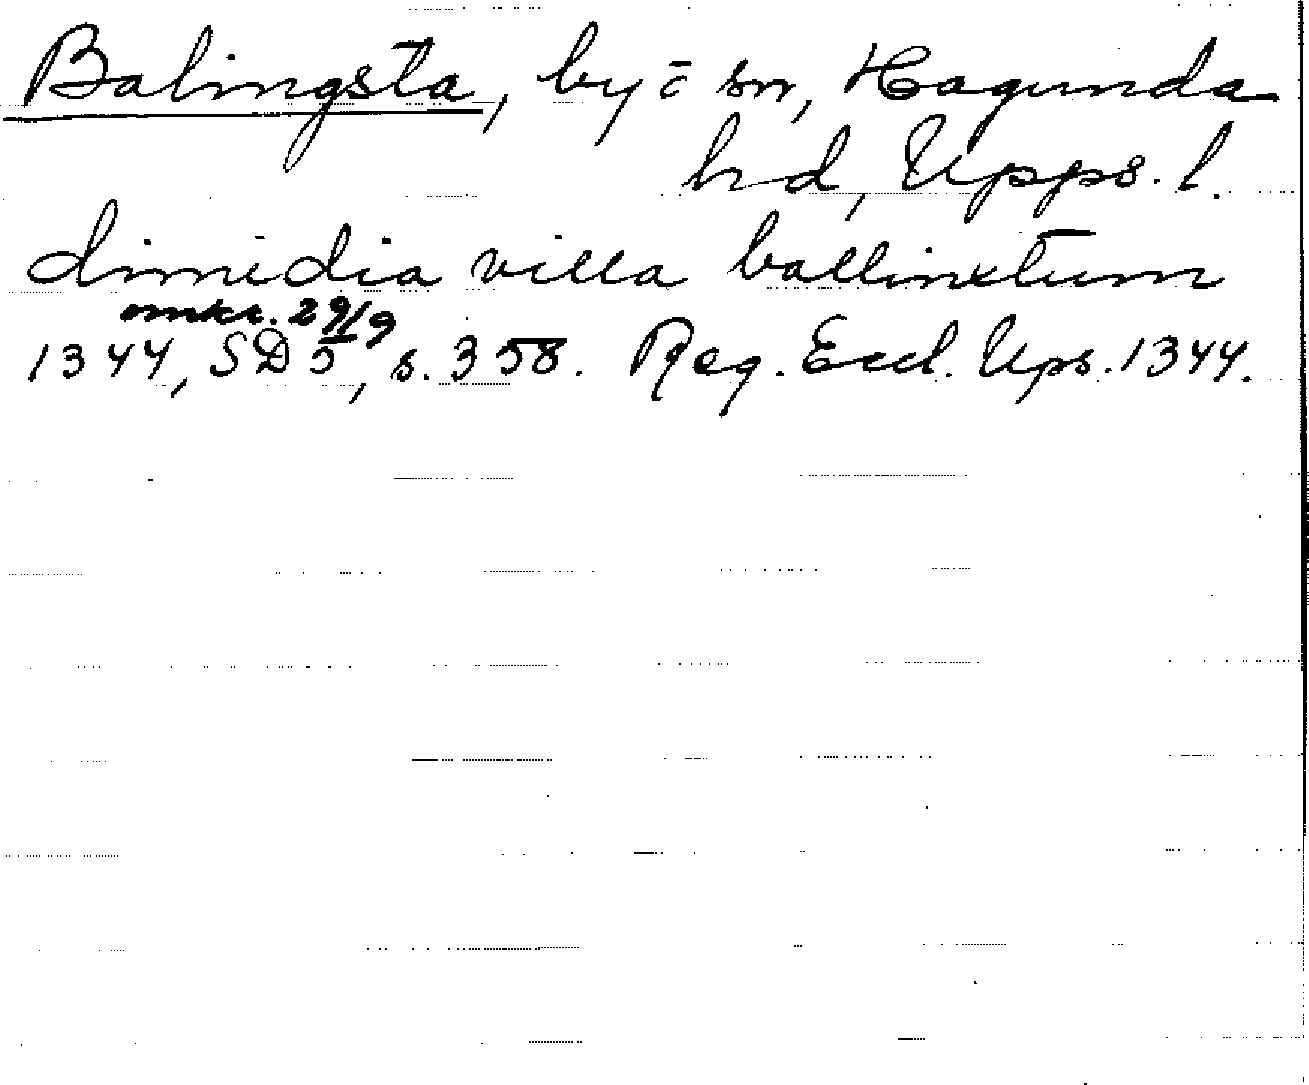 Balingsta, by o sn, Hagunda
hd, Upps. l.
dimidia villa ballinxtum
omkr. 29/9
1344, SD 5, s. 358. Reg. Eccl. Ups. 1344.